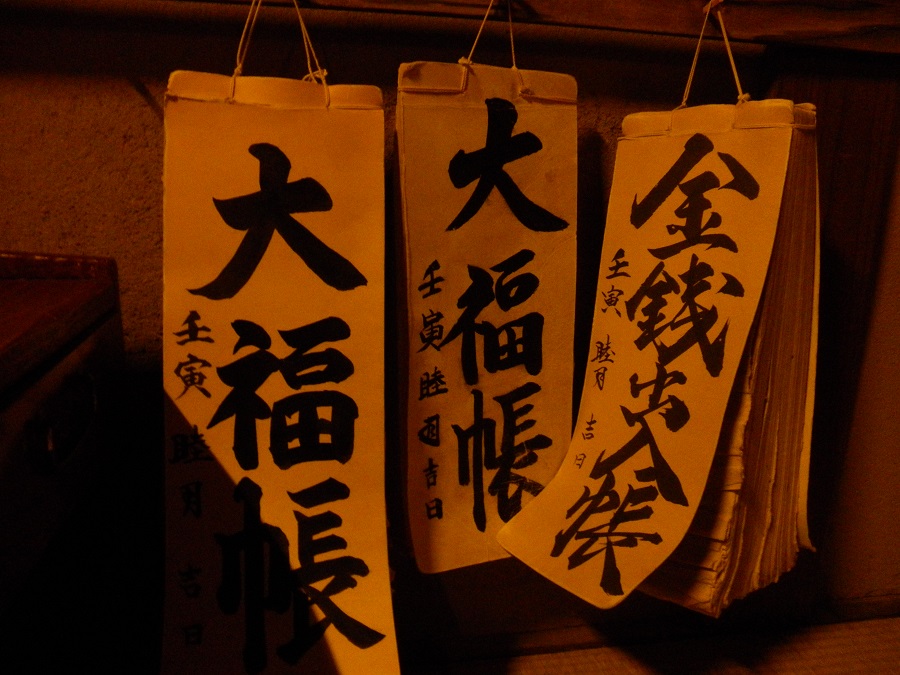 大福帳
壬寅 睦月 吉日
大福帳
壬寅睦月吉日
金銭出入帳
壬寅 睦月 吉日